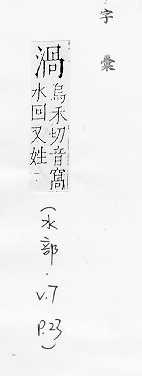 字彙
渦
烏禾切音窩
水回又姓
(水部.V.7
P.23)